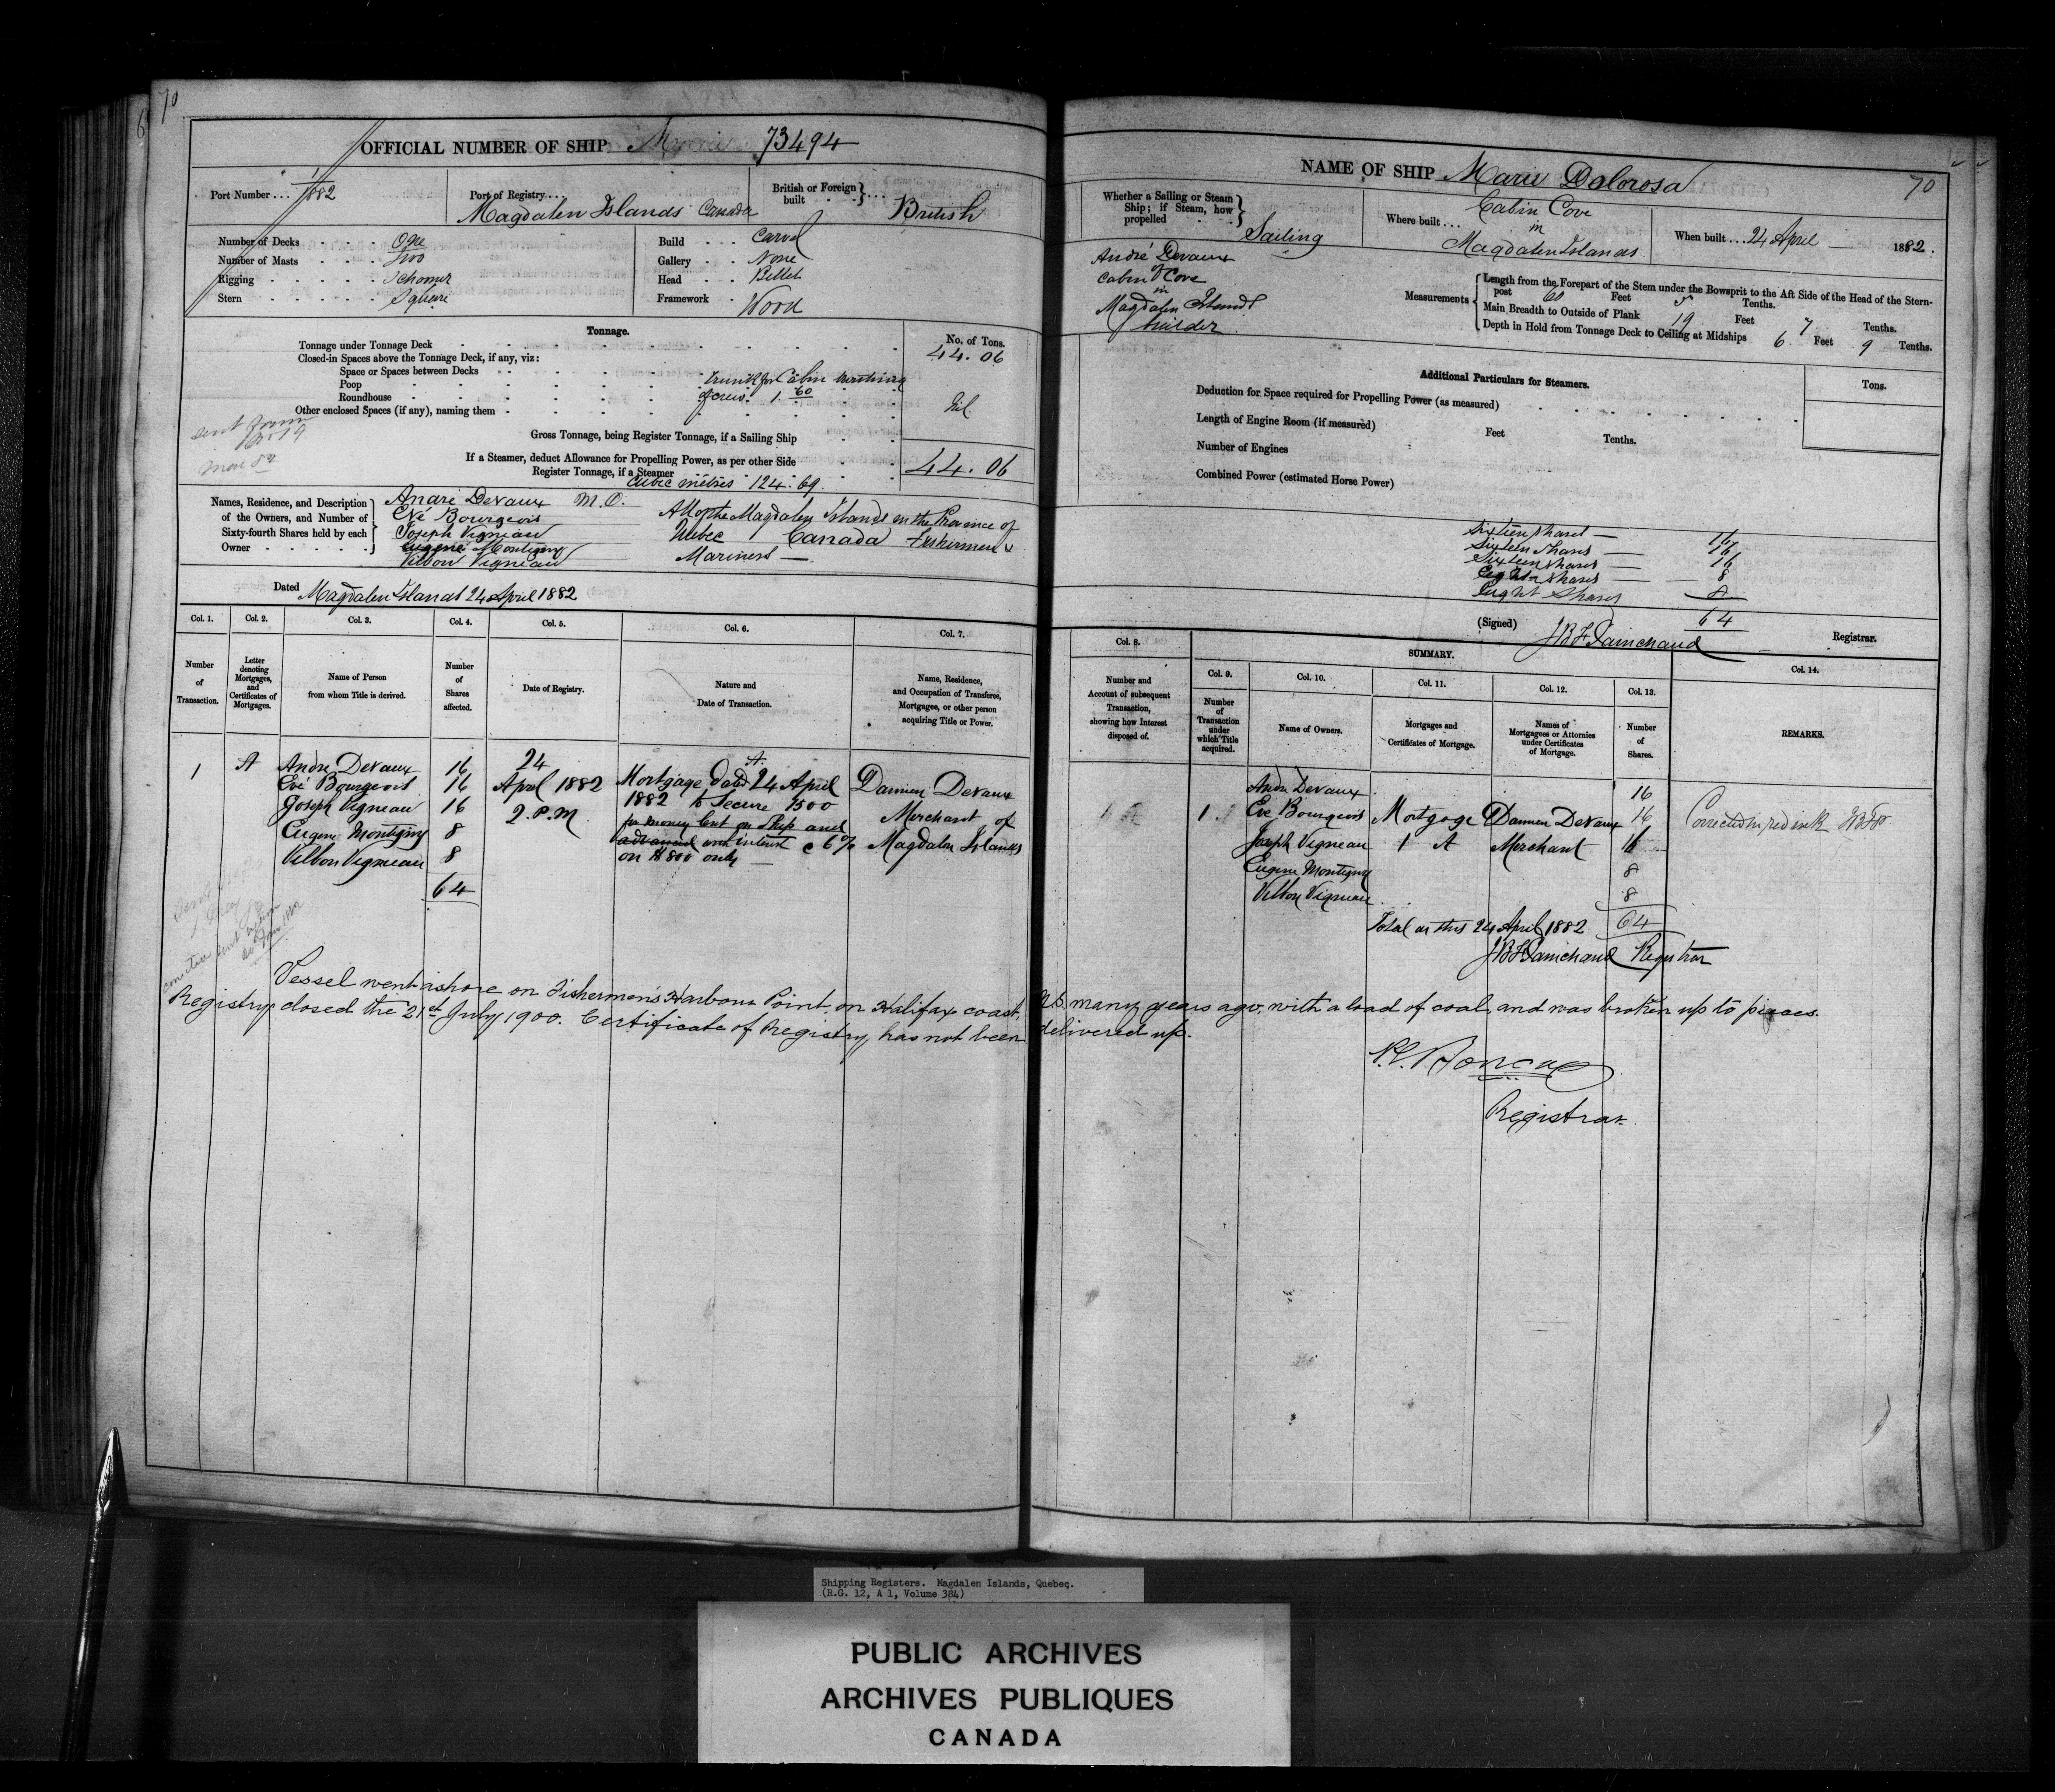 70
OFFICIAL NUMBER OF SHIP 73494
Port Number ... 1/1882
Port of Registry ... Magdalen Islands Canada
British or Foreign built ... British
Number of Decks One
Number of Masts Two
Rigging Schoner
Stern Square
Build Carvel
Gallery None
Head Billet
Framework Wood
Tonnage.
No. of Tons.
Tonnage under Tonnage Deck 44.06
Closed-in Spaces above the Tonnage Deck, if any, viz:
Space or Spaces between Decks
Poop trunk for Cabin
Roundhouse of crew. 1.60
Other enclosed Spaces (if any), naming them Nil
Gross Tonnage, being Register Tonnage, if a Sailing Ship
If a Steamer, deduct Allowance for Propelling Power, as per other Side
44.06
Register Tonnage, if a Steamer
Cubic mètres 124.69
Names, Residence, and Description of the Owners, and Number of Sixty-fourth Shares held by each Owner
André Devaux M.O.
Evé Bourgeois
Joseph Vigneau
Eugene Montigny
Vilbon Vigneau
All of the Magdalen Islands in the Province of
Quebec Canada Fishermen &
Mariners
Dated Magdalen Islands 24 April 1882
Col. 1. Col. 2. Col. 3. Col. 4. Col. 5. Col. 6. Col. 7.
Number of Transaction.
Letter denoting Mortgages, and Certificates of Mortgages.
Name of Person from whom Title is derived.
Number of Shares affected.
Date of Registry.
Nature and Date of Transaction.
Name, Residence, and Occupation of Transferee, Mortgagee, or other person acquiring Title or Power.
1 A
Andre Devaux 16
Evé Bourgeois 16
Joseph Vigneau 16
Eugene Montigny 8
Vilbon Vigneau 8
64
24
April 1882
2. P.M
A
Mortgage dated 24 April
1882 to Secure 1500
for money lent on Ship and
advanced with interest @ 6%
on $800 only
Damien Devaux
Merchant of
Magdalen Islands
Vessel went ashore on Fishermen's Harbour Point, on Halifax coast, N.S. many years ago, with a load of coal, and was broken up to pieces.
Registry closed the 21st July 1900. Certificate of Registry has not been delivered up.
Registrar
NAME OF SHIP Marie Dolorosa
70
Whether a Sailing or Steam Ship; if Steam, how propelled Sailing
Where built ... Cabin Cove in Magdalen Islands
When built ... 24 April 1882.
André Devaux
of
Cabin Cove
in
Magdalen Islands
builder
Measurements
Length from the Forepart of the Stem under the Bowsprit to the Aft Side of the Head of the Stern-post 60 Feet Tenths.
Main Breadth to Outside of Plank 19 Feet 7 Tenths.
Depth in Hold from Tonnage Deck to Ceiling at Midships 6. Feet 9 Tenths.
Additional Particulars for Steamers.
Tons.
Deduction for Space required for Propelling Power (as measured)
Length of Engine Room (if measured) Feet Tenths.
Number of Engines
Combined Power (estimated Horse Power)
Sixteen shares 16
Sixteen shares 16
Sixteen shares 16
Eight shares 8
Eight shares 8
64
(Signed) J B F Painchaud Registrar.
Col. 8.
SUMMARY.
Col. 9. Col. 10. Col. 11. Col. 12. Col. 13. Col. 14.
Number and Account of subsequent Transaction, showing how Interest disposed of.
Number of Transaction under which Title acquired.
Name of Owners.
Mortgages and Certificates of Mortgage.
Names of Mortgagees or Attornies under Certificates of Mortgage.
Number of Shares.
REMARKS.
1 A
1
Andre Devaux 16
Eve Bourgeois 16
Joseph Vigneau 16
Eugene Montigny 8
Vilbon Vigneau 8
Mortgage
1 A
Damien Devaux
Merchant
Total on this 24 April 1882 64
JBF Painchaud Registrar
Corrected in red ink JBFP
Shipping Registers. Magdalen Islands, Quebec.
(R.G. 12, A 1, Volume 384)
PUBLIC ARCHIVES
ARCHIVES PUBLIQUES
CANADA